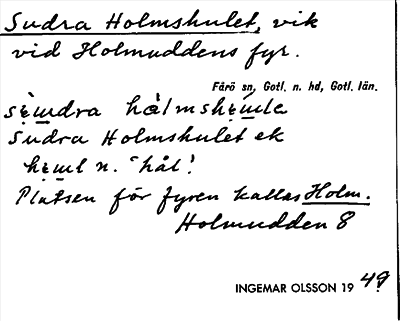 Sudra Holmshulet, vik
vid Holmuddens fyr.
Fårö sn, Gotl. n. hd, Gotl. län.
Sudra Holmshulet ek
n. "hål".
Platsen för fyren kallas Holm.
Holmudden 8
INGEMAR OLSSON 19 49